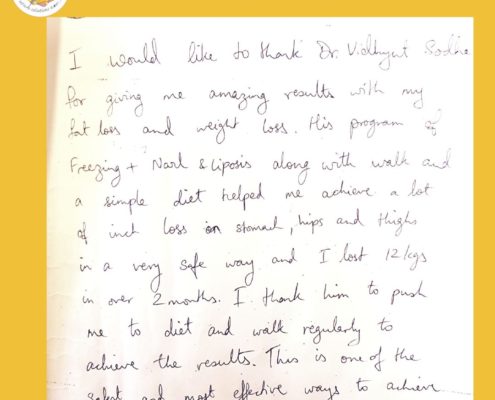 I would like to thank Dr. Vidhyut Sodha
for giving me amazing results with my
fat loss and weight loss. His program of
Freezing + Narl & liposis along with walk and
a simple diet helped me achieve a lot
of inch loss on stomach, hips and thighs
in a very safe way and I lost 12 kgs
in over 2 months. I thank him to push
me to diet and walk regularly to
achieve the results. This is one of the
safest and most effective ways to achieve